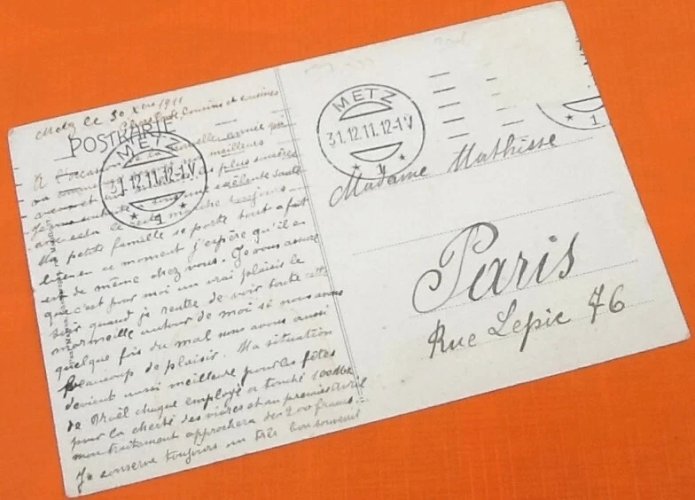 Metz le 30 Xbre 1911
cousins et cousines
POSTKARTE
METZ
31.12.11.12-1V
1
A l'occasion de la nouvelle année qui
meilleurs
plus sincères
excélente santé
toujours
Ma petite famille se porte tout a fait
bien en ce moment j'espère qu'il en
est de même chez vous. Je vous assure
que c'est pour moi un vrai plaisir le
soir quand je rentre de voir toute cette
marmaille autour de moi si nous avons
quelque fois du mal nous avons aussi
beaucoup de plaisir. Ma situation
devient aussi meilleure pour les fêtes
de Noël chaque employé a touché 100 Mk
pour la cherté des vivres et au premier Avril
mon traitement approchera des 200 francs
Je conserve toujours un très bon souvenir
METZ
31.12.11.12-1V
1
1
Madame Mathisse
Paris
Rue Lepic 76